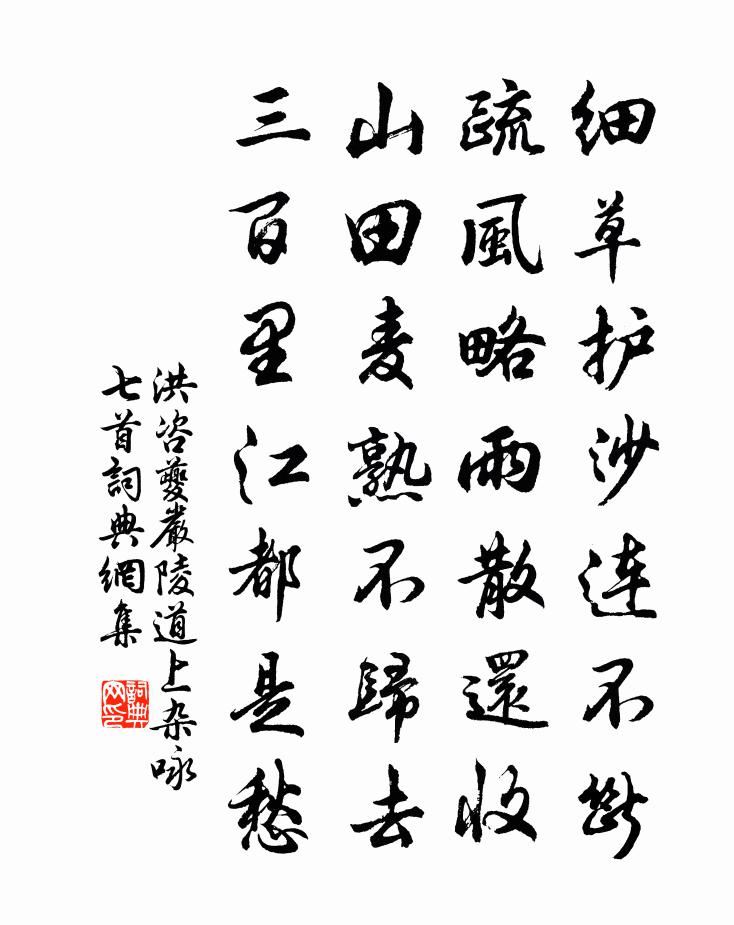 细草护沙连不断
疏風略雨散還收
山田麦熟不歸去
三百里江都是愁
洪咨夔嚴陵道上杂咏
七首詞典網集
詞典
网印